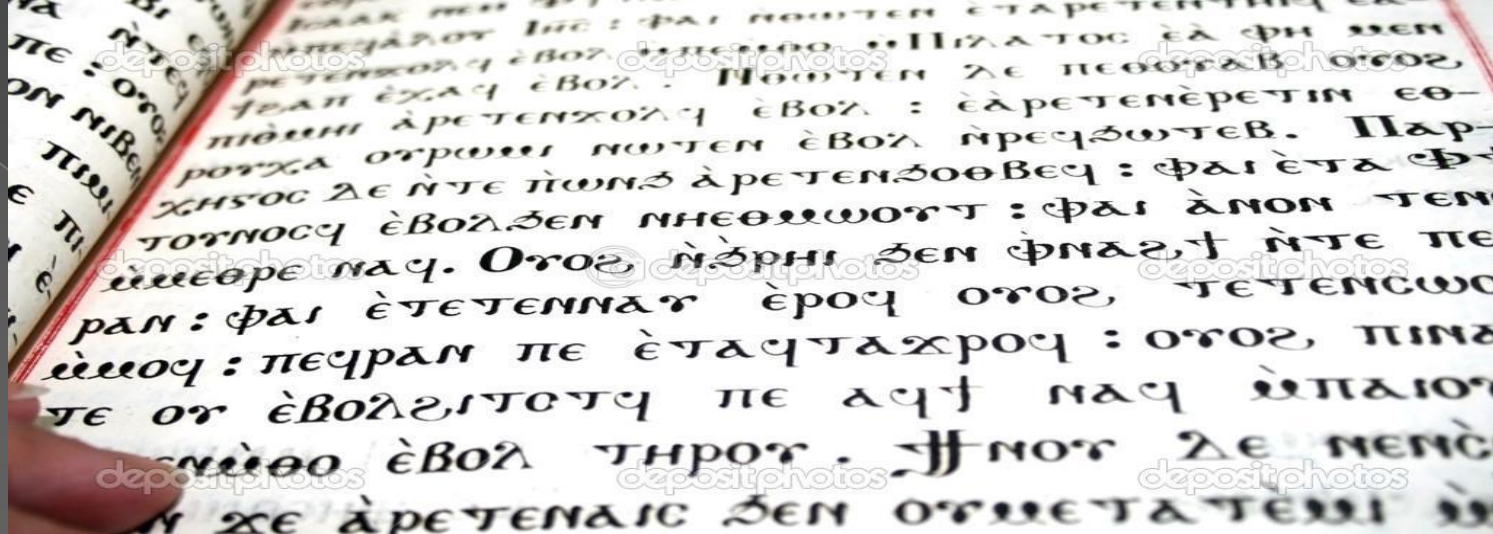 ⲙ̀ⲡⲉϥⲁ̀ⲗⲟⲩ Ⲓⲏⲥ : ⲫⲁⲓ ⲛⲑⲱⲧⲉⲛ
ⲣⲉⲧⲉⲛϫⲟⲗϥ ⲉ̀ⲃⲟⲗ ⲙ̀ⲡⲉⲙⲑⲟ ⲙ̀Ⲡⲓⲗⲁⲧⲟⲥ ⲉ̀ⲁ̀ ⲫⲏ ⲙⲉⲛ
ϯϩⲁⲡ ⲉ̀ϫⲁϥ ⲉ̀ⲃⲟⲗ . Ⲛⲑⲱⲧⲉⲛ ⲇⲉ ⲡⲉⲑⲟⲩⲁⲃ ⲟⲩⲟϩ
ⲡⲓⲑⲙⲏⲓ ⲁ̀ⲣⲉⲧⲉⲛϫⲟⲗϥ ⲉ̀ⲃⲟⲗ : ⲉ̀ⲁ̀ⲣⲉⲧⲉⲛⲉ̀ⲣⲉⲧⲓⲛ ⲉⲑ-
ⲣⲟⲩⲭⲁ ⲟⲩⲣⲱⲙⲓ ⲛⲱⲧⲉⲛ ⲉ̀ⲃⲟⲗ ⲛ̀ⲣⲉϥϧⲱⲧⲉⲃ. Ⲡⲁⲣ-
ⲭⲏⲅⲟⲥ ⲇⲉ ⲛ̀ⲧⲉ ⲡ̀ⲱⲛϧ ⲁ̀ⲣⲉⲧⲉⲛϧⲟⲑⲃⲉϥ : ⲫⲁⲓ ⲉ̀ⲧⲁ Ⲫϯ
ⲧⲟⲩⲛⲟⲥϥ ⲉ̀ⲃⲟⲗϧⲉⲛ ⲛⲏⲉⲑⲙⲱⲟⲩⲧ : ⲫⲁⲓ ⲁ̀ⲛⲟⲛ ⲧⲉⲛ
ⲙ̀ⲙⲉⲑⲣⲉ ⲛⲁϥ. Ⲟⲩⲟϩ ⲛ̀ϧⲣⲏⲓ ϧⲉⲛ ⲫ̀ⲛⲁϩϯ ⲛ̀ⲧⲉ ⲡⲉ
ⲣⲁⲛ : ⲫⲁⲓ ⲉ̀ⲧⲉⲧⲉⲛⲛⲁⲩ ⲉ̀ⲣⲟϥ ⲟⲩⲟϩ ⲧⲉⲧⲉⲛⲥⲱⲟ
ⲙ̀ⲙⲟϥ : ⲡⲉϥⲣⲁⲛ ⲡⲉ ⲉ̀ⲧⲁϥⲧⲁϫⲣⲟϥ : ⲟⲩⲟϩ ⲡⲓⲛⲁ
ⲧⲉ ⲟⲩ ⲉ̀ⲃⲟⲗϩⲓⲧⲟⲧϥ ⲡⲉ ⲁϥϯ ⲛⲁϥ ⲙ̀ⲡⲁⲓⲟⲩ
ⲉⲛⲙ̀ⲑⲟ ⲉ̀ⲃⲟⲗ ⲧⲏⲣⲟⲩ . Ϯⲛⲟⲩ ⲇⲉ ⲛⲉⲛⲥ̀
ⲛ ϫⲉ ⲁ̀ⲣⲉⲧⲉⲛⲁⲓⲥ ϧⲉⲛ ⲟⲩⲙⲉⲧⲁⲧⲉ̀ⲙⲓ ⲙ̀
depositphotos